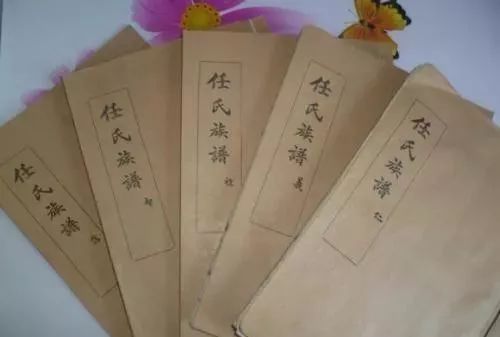 任氏族譜 仁
任氏族譜 義
任氏族譜 禮
任氏族譜
任氏族譜 信